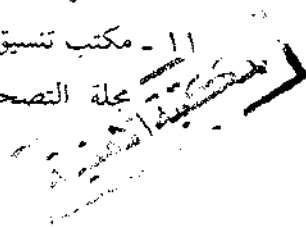 ١١ ـ مكتب تنسيق
مجلة التصحـ